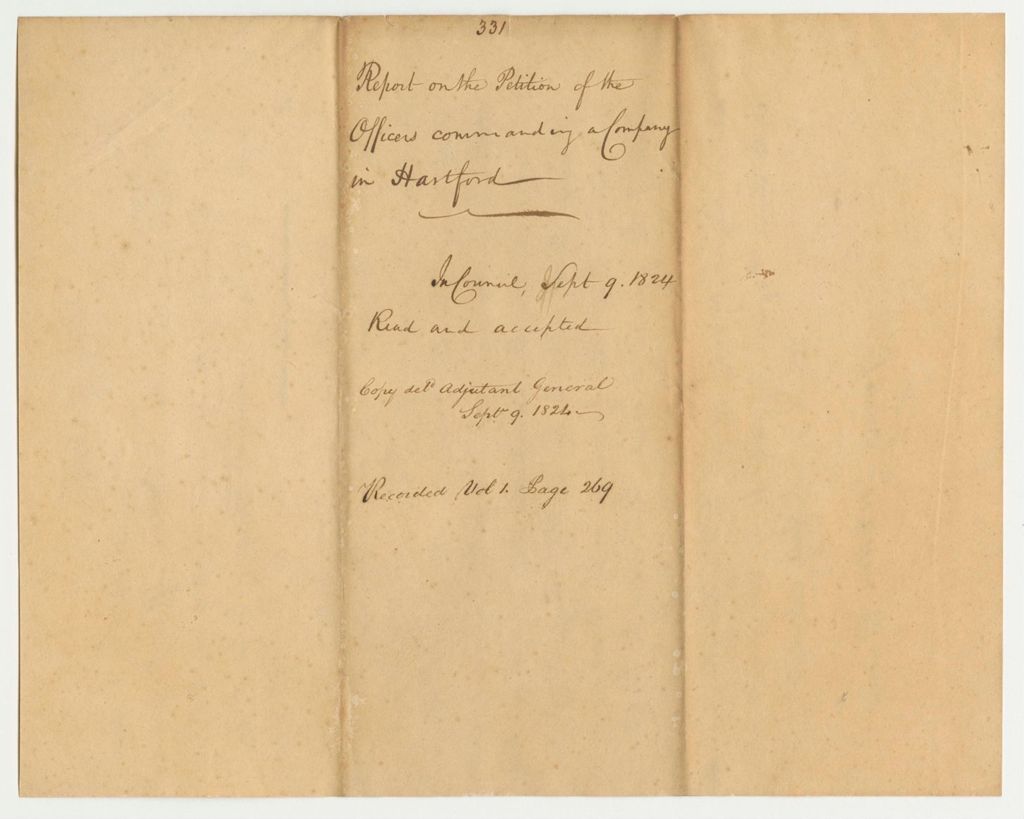 331
Report on the Petition of the
Officers commanding a Company
in Hartford
In Council, Sept 9. 1824
Read and accepted
Copy detd Adjutant General
Sept 9. 1824
Recorded Vol 1. Page 269